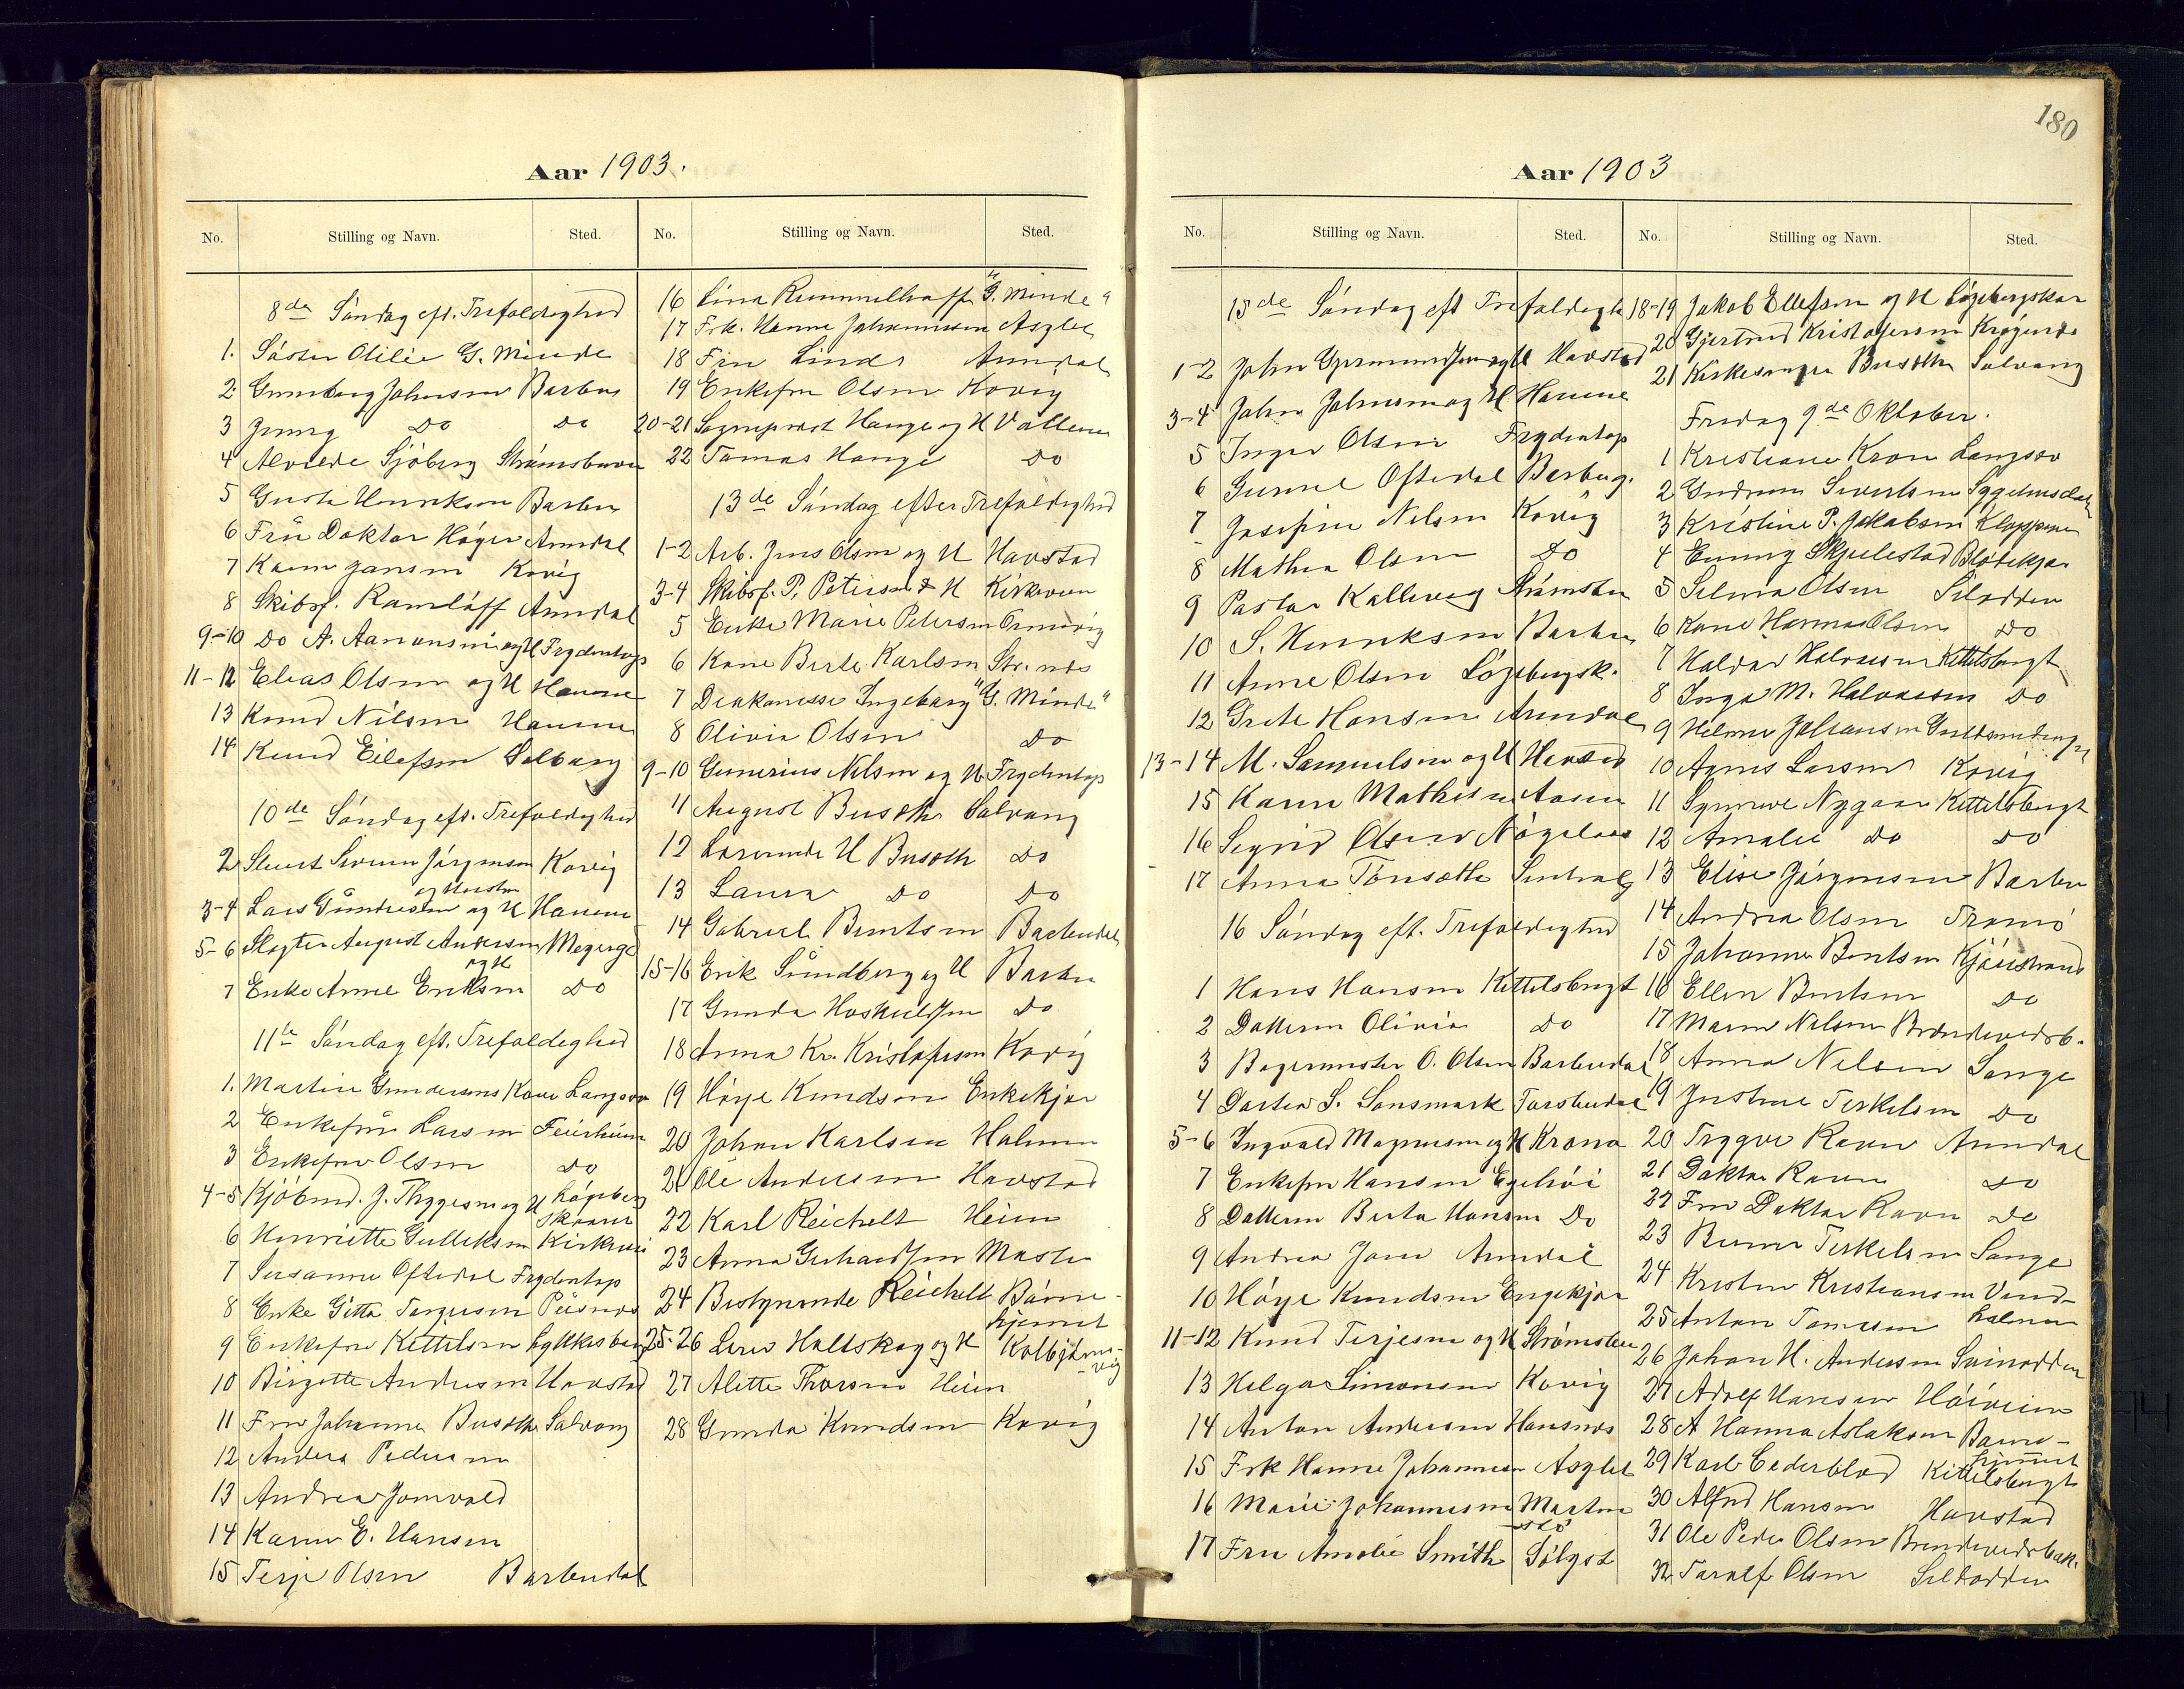 Aar 1903.
No. Stilling og Navn. Sted. No. Stilling og Navn. Sted.
8de Søndag eft. Trefoldighed
1. Søster Otilie G. Minde
2 Gunnborg Johnsen Barbu
3 Jenny Do Do
4 Alvilde Sjöberg Strømsbuen
5 Henriksen Barbu
6 Fru Doktor Høyer Arendal
7 Karen Jansen Kovig
8 Skibsf. Ramløff Arendal
9-10 Do A. Aanonsen og H Frydentop
11-12 Elias Olsen og H Havene
13 Knud Nilsen Havene
14 Knud Eilefsen Solborg
10de Søndag eft. Trefoldighed
2 Sivert Jørgensen Kovig
3-4 Lars Gundersen og H Havene
5-6 Slagter August Andersen Meyergd
og H
7 Enke Anne Eriksen Do
11te Søndag eft. Trefoldighed
1. Martin Gundersens Kone Langsev
2 Enkefru Larsen
3 Enkefru Olsen Do
4-5 Kjöbmd. J. Thygesen og H Løgeberg
skaaret
6 Henriette Gulleksen Kirkevei
7 Susanne Oftedal Frydentop
8 Enke Gitta Torgersen
9 Enkefru Kittilsen Lykkesborg
10 Birgitte Andersen Havstad
11 Fru Johanne Busoth Solvang
12 Anders Pedersen
13 Andrea Jomvold
14 Karen E. Hansen
15 Terje Olsen Barbudal
16 Lina Rummelhoff "G. Minde"
17 Frk. Hanne Johannessen Asylet
18 Fru Lind Arendal
19 Enkefru Olsen Kovig
20-21 Sogneprest Hauge og H Vollene
22 Tomas Hauge Do
13de Søndag efter Trefoldighed
1-2 Arb. Jens Olsen og H Havstad
3-4 Skibsf. P. Petersen & H Kirkeveien
5 Enke Marie Petersen Ormevig
6 Kone Berte Karlsen Str. næs
7 Diakonisse Ingeborg "G. Minde"
8 Olivia Olsen Do
9-10 Gunerius Nilsen og H Frydentop
11 August Busoth Solvang
12 H Busoth Do
13 Laura Do Do
14 Gabriel Berntsen Barbudal
15-16 Erik Sundberg og H Barbu
17 Gunda Hoskuldsen Do
18 Anna Kr. Kristofersen Kovig
19 Höye Knudsen Enkekjær
20 Johan Karlsen Holmen
21 Ole Andersen Havstad
22 Karl Reichelt Heien
23 Anna Gerhardsen
24 Bestyrerinde Reichelt Børne-
hjemmet
25-26 Lars Holtskog og H Kolbjørns-
vig
27 Alette Thorsen Heien
28 Gunda Knudsen Kovig
180
Aar 1903
No. Stilling og Navn. Sted. No. Stilling og Navn. Sted.
15de Søndag eft Trefoldighed
1-2 John Gjermundsen og H Havstad
3-4 John Johnsen og H Havene
5 Inger Olsen Frydentop
6 Gunne Oftedal Barbug.
7 Josefine Nilsen Kovig
8 Mathea Olsen Do
9 Pastor Kallevig Strømsbu
10 S. Henriksen Barbu
11 Anne Olsen Løgebergsk.
12 Grete Hansen Arendal
13-14 M. Samuelsen og H Havstad
15 Karen Mathisen Aasen
16 Sigrid Olsen
17 Anna Tönseth
16 Søndag eft. Trefoldighed
1 Hans Hansen Kittelsbugt
2 Datteren Olivia Do
3 Bagermester O. Olsen Barbudal
4 Dorthea S. Torsbudal
5-6 Ingvald Magnusen og H Krona
7 Enkefru Hansen Egehøi
8 Datteren Berta Hansen Do
9 Andrea Arendal
10 Höye Knudsen Engekjær
11-12 Knud Terjesen og H Strømsbu
13 Helga Simonsen Kovig
14 Anton Andersen Hansnæs
15 Frk Hanne Johannesen Asylet
16 Marie Johannesen
17 Fru Amalie Smith
18-19 Jakob Ellefsen og H Løgebergskar
20 Gjertrud Kristofersen Krøgenæs
21 Kirkesanger Busoth Solvang
Fredag 9de Oktober.
1 Kristiane Kron Langsev
2 Gudrun Sivertsen Sygehusdal
3 Kristine P. Jakobsen Kloppene
4 Emmy Skjulestad Blødekjær
5 Selma Olsen Silodden
6 Kone Hanna Olsen Do
7 Haldor Halvorsen Kittelsbugt
8 Inga M. Halvorsen Do
9 Helene Johansen
10 Agnes Larsen Kovig
11 Synnøve Nygaar Kittelsbugt
12 Amalie Do Do
13 Elise Jørgensen Barbu
14 Andrea Olsen Tromö
15 Johanne Berntsen Kjønstrand
16 Ellen Berntsen Do
17 Maren Nilsen Brændevedsb.
18 Anna Nilsen Songe
19 Justine Terkelsen Do
20 Trygve Ravn Arendal
21 Doktor Ravn Do
22 Fru Doktor Ravn Do
23 Terkelsen Songe
24 Kristen Kristiansen Vind-
holmen
25 Anton Tomesen
26 Johan H. Andersen Svinodden
27 Adolf Hansen Höiveien
28 A Hanna Aslaksen Børne-
hjemmet
29 Karl Cederblad Kittelsbugt
30 Alfred Hansen Havstad
31 Ole Peder Olsen Brændevedsbak.
32 Taralf Olsen Silodden